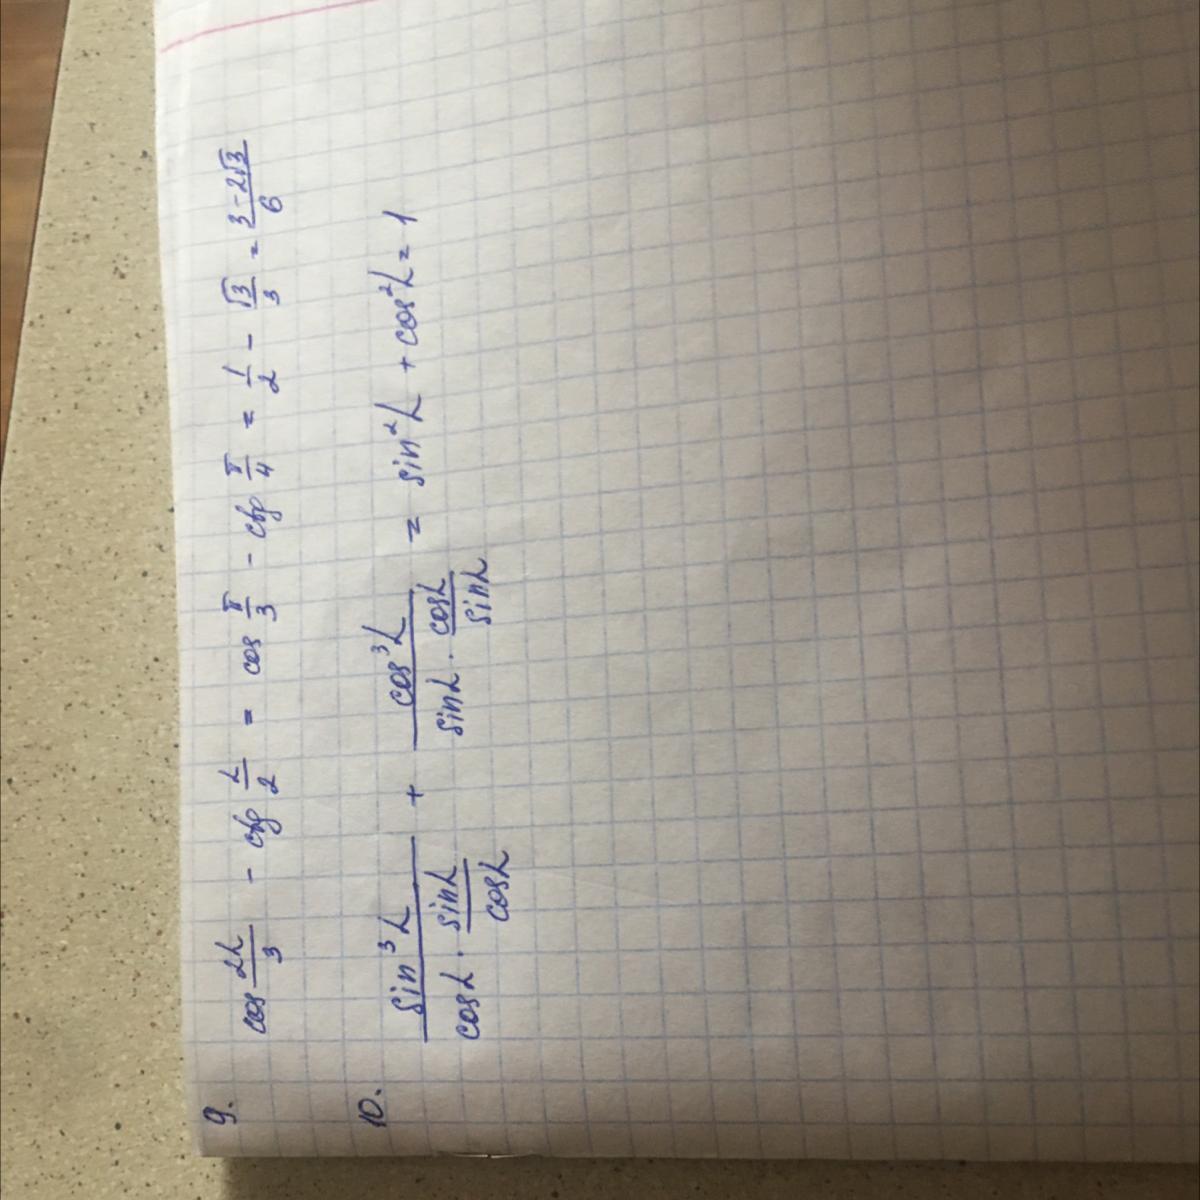 9. cos 2α/3 - ctg α/2 = cos π/3 - ctg π/4 = 1/2 - √3/3 = (3-2√3)/6
10. sin³α/(cosα · sinα/cosα) + cos³α/(sinα · cosα/sinα) = sin²α + cos²α = 1